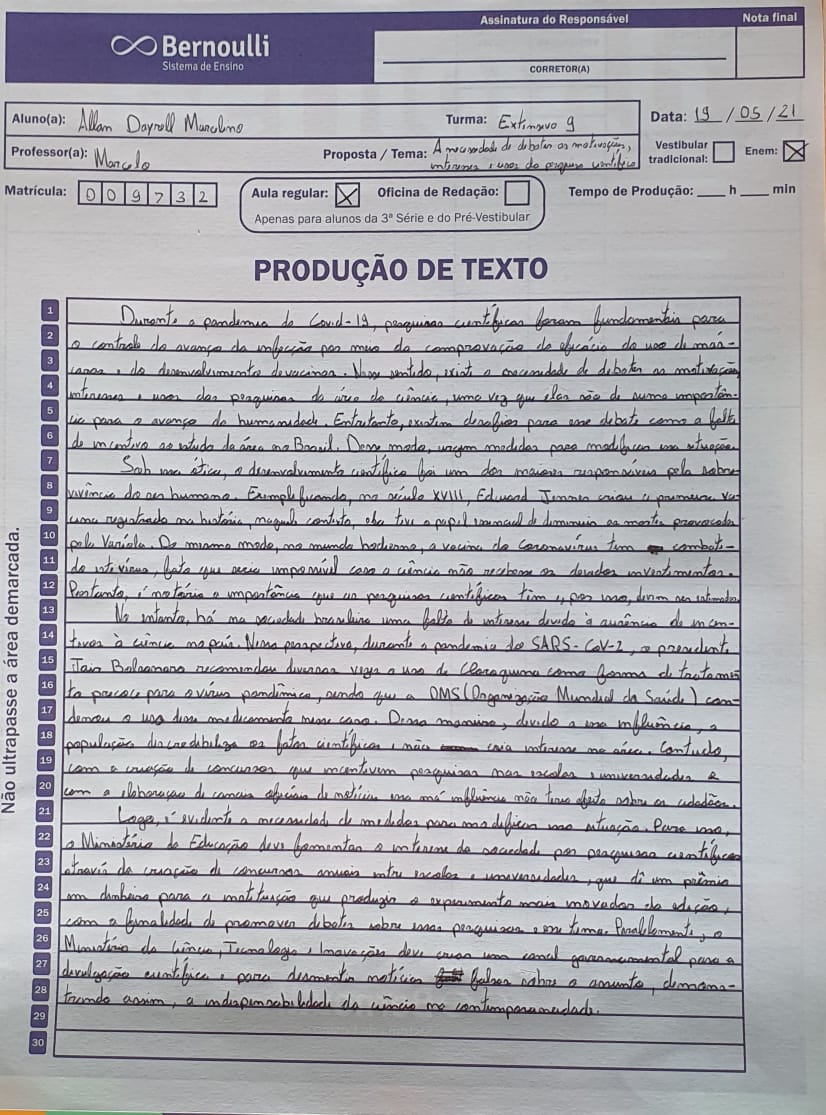 Bernoulli
Sistema de Ensino
Assinatura do Responsável
Nota final
CORRETOR(A)
Aluno(a): Allan Dayrell Marcolino
Turma: Extensivo 9
Data: 19/05/21
Professor(a): Marcelo
Proposta / Tema: A necessidade de debater as motivações,
interesses e usos da pesquisa científica
Vestibular tradicional:
Enem: X
Matrícula: 009732
Aula regular: X
Oficina de Redação:
Tempo de Produção: ____ h ____ min
Apenas para alunos da 3ª Série e do Pré-Vestibular
PRODUÇÃO DE TEXTO
Não ultrapasse a área demarcada.
1 Durante a pandemia do Covid-19, pesquisas científicas foram fundamentais para
2 o controle do avanço da infecção por meio da comprovação da eficácia do uso de más-
3 caras e do desenvolvimento de vacinas. Nesse sentido, existe a necessidade de debater as motivações,
4 interesses e usos das pesquisas da área da ciência, uma vez que elas são de suma importân-
5 cia para o avanço da humanidade. Entretanto, existem desafios para esse debate como a falta
6 de incentivo ao estudo da área no Brasil. Desse modo, urgem medidas para modificar essa situação.
7 Sob essa ótica, o desenvolvimento científico foi um dos maiores responsáveis pela sobre-
8 vivência do ser humano. Exemplificando, no século XVIII, Edward Jenner criou a primeira va-
9 cina registrada na história, naquele contexto, ela teve o papel essencial de diminuir as mortes provocadas
10 pela Varíola. Do mesmo modo, no mundo hodierno, a vacina do Coronavírus tem combati-
11 do este vírus, fato que seria impossível caso a ciência não recebesse os devidos investimentos.
12 Portanto, é notória a importância que as pesquisas científicas têm e, por isso, devem ser
13 No entanto, há na sociedade brasileira uma falta de interesse devido à ausência de incen-
14 tivos à ciência no país. Nessa perspectiva, durante a pandemia do SARS-CoV-2, o presidente
15 Jair Bolsonaro recomendou diversas vezes o uso de Cloroquina como forma de tratamen-
16 to precoce para o vírus pandêmico, sendo que a OMS (Organização Mundial da Saúde) con-
17 denou o uso desse medicamento nesse caso. Dessa maneira, devido a essa influência, a
18 população discredibiliza os fatos científicos e não cria interesse na área. Contudo,
19 com a criação de concursos que incentivem pesquisas nas escolas e universidades e
20 com a elaboração de canais oficiais de notícias essa má influência não teria efeito sobre os cidadãos.
21 Logo, é evidente a necessidade de medidas para modificar essa situação. Para isso,
22 o Ministério da Educação deve fomentar o interesse da sociedade por pesquisas científicas
23 através da criação de concursos anuais entre escolas e universidades, que dê um prêmio
24 em dinheiro para a instituição que produzir o experimento mais inovador da edição,
25 com a finalidade de promover debates sobre essas pesquisas e seu tema. Paralelamente, o
26 Ministério da Ciência, Tecnologia e Inovações deve criar um canal governamental para a
27 divulgação científica e para desmentir notícias falsas sobre o assunto, demons-
28 trando assim, a indispensabilidade da ciência na contemporaneidade.
29
30